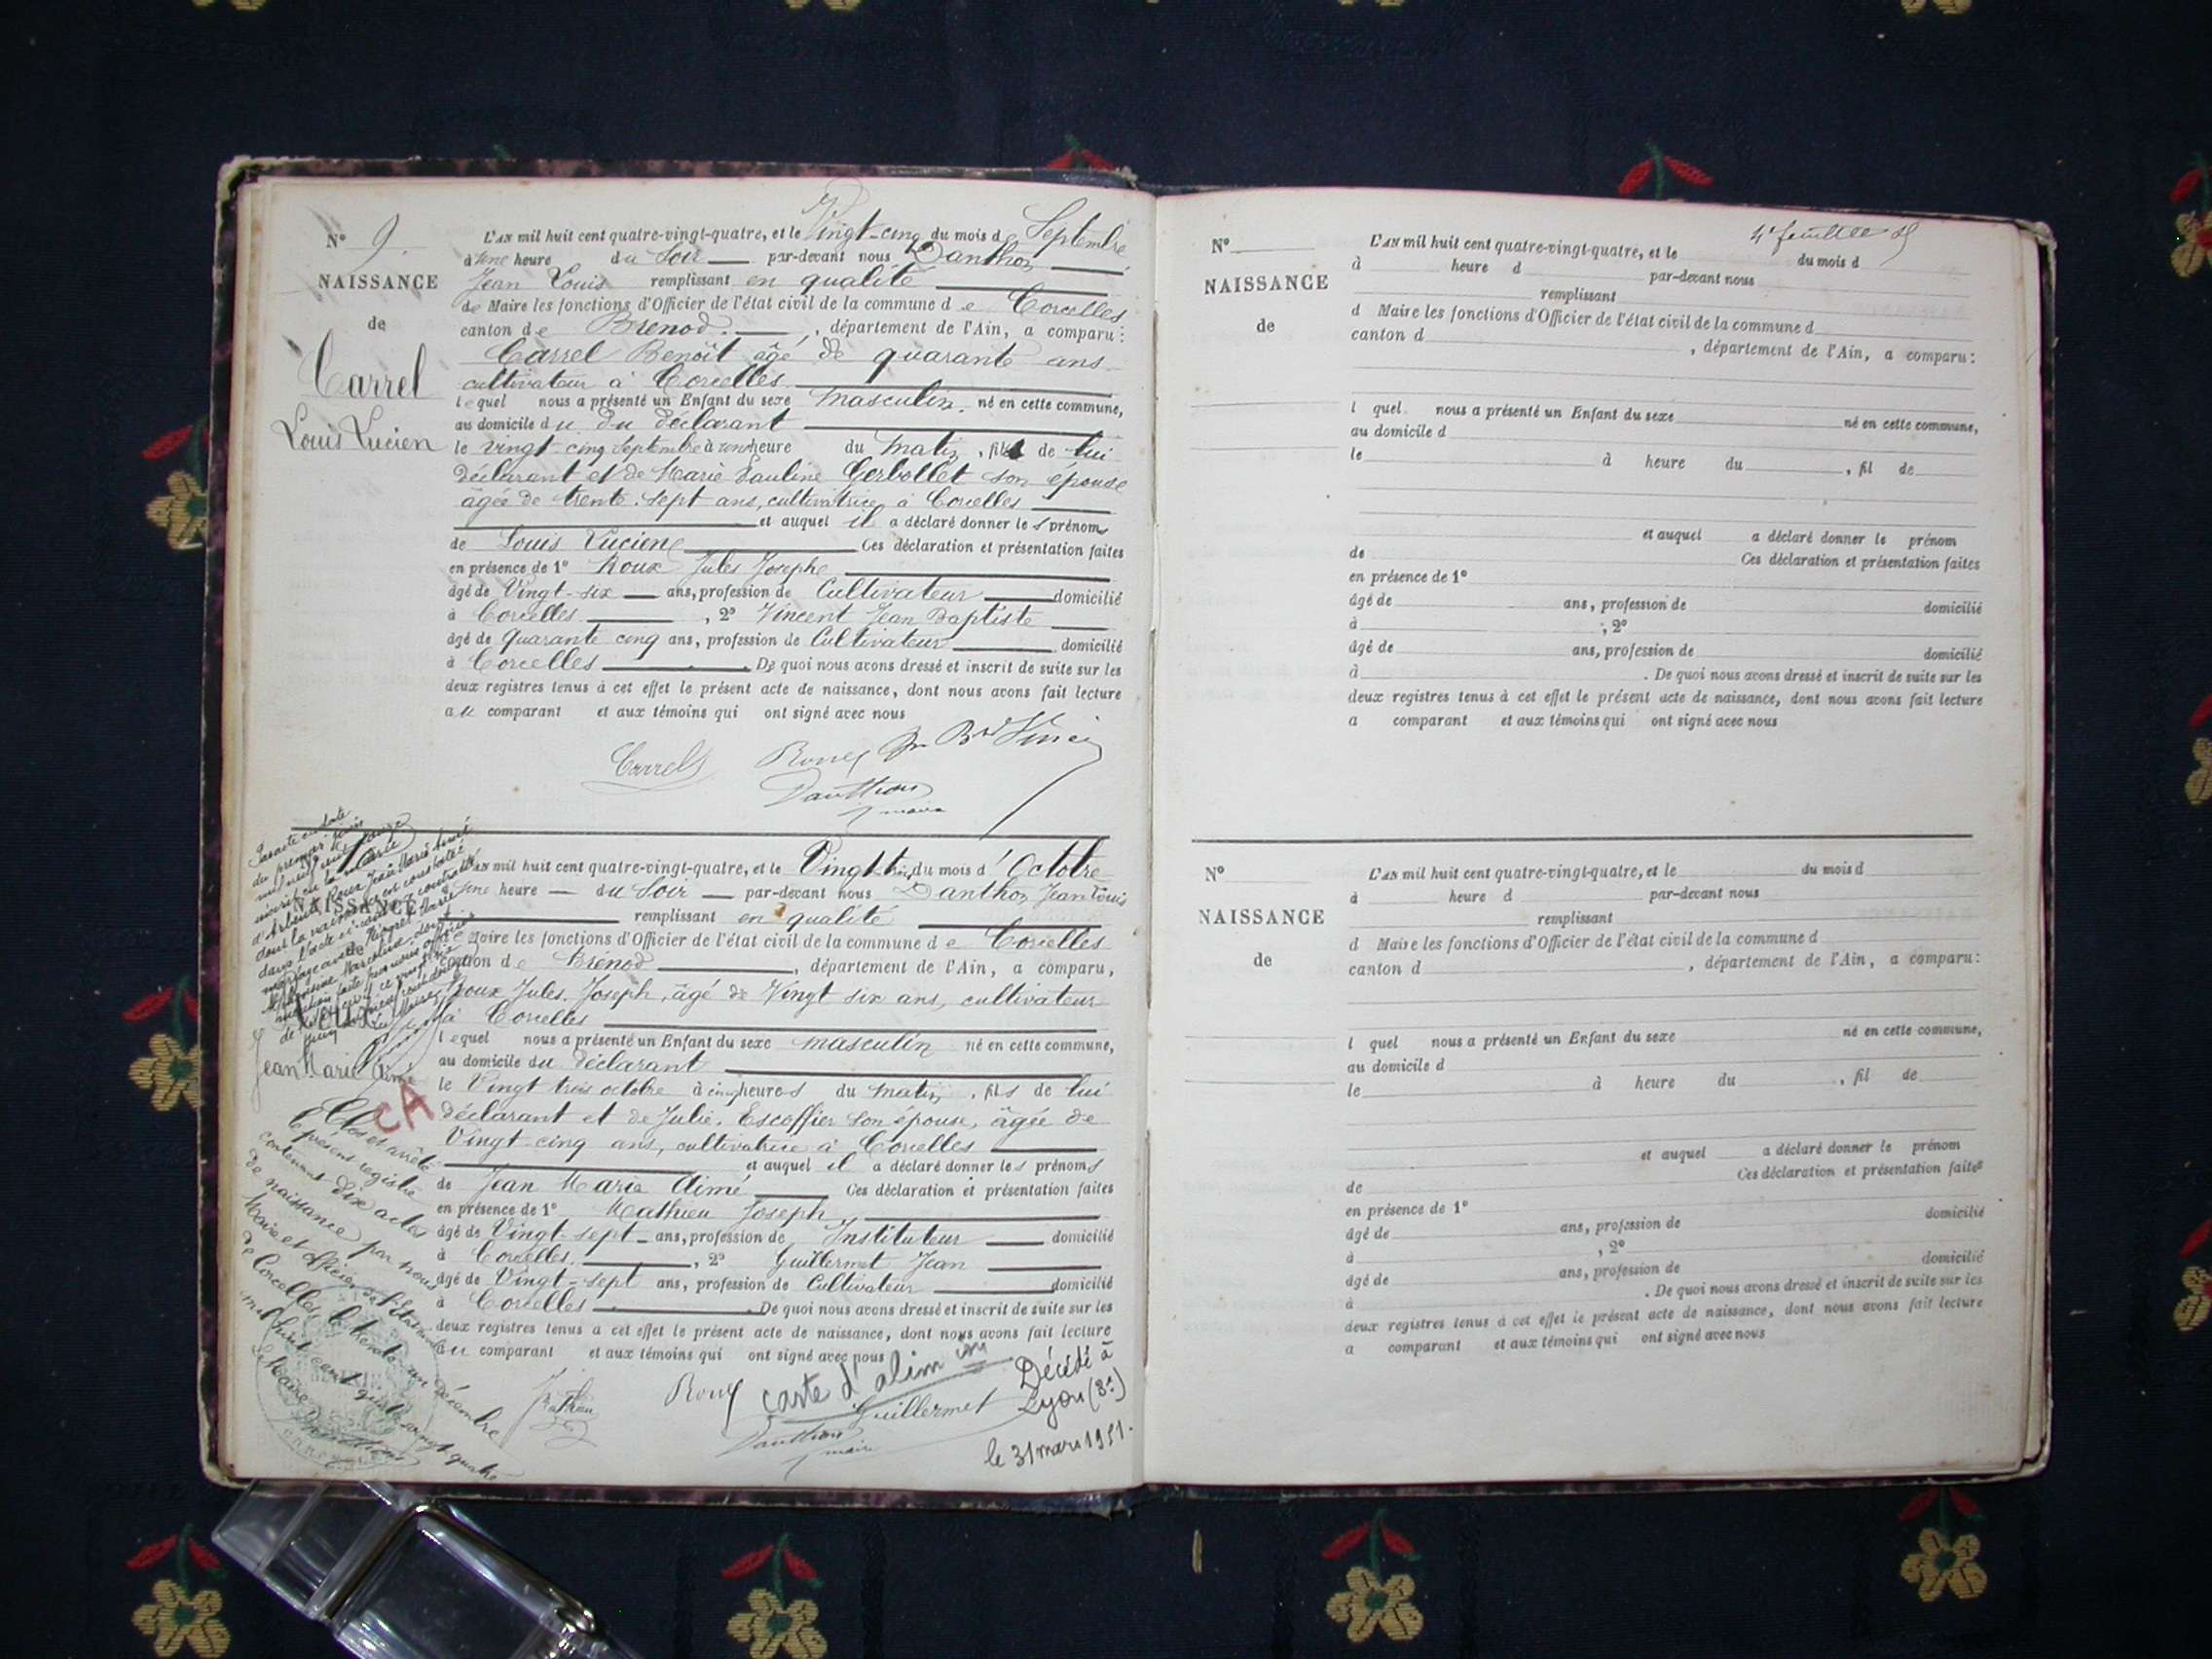 N° 9.
NAISSANCE
de
Carrel
Louis Lucien
L'AN mil huit cent quatre-vingt-quatre, et le Vingt-cinq du mois de Septembre
à une heure du Soir par-devant nous Danthon
Jean Louis remplissant en qualité
de Maire les fonctions d'Officier de l'état civil de la commune de Corcelles
canton de Brenod, département de l'Ain, a comparu:
Carrel Benoît âgé de quarante ans
cultivateur à Corcelles
lequel nous a présenté un Enfant du sexe masculin, né en cette commune,
au domicile du du déclarant
le vingt-cinq Septembre à heure du matin, fils de lui
déclarant et de Marie Pauline Gerbollet son épouse
âgée de trente-sept ans, cultivatrice à Corcelles
et auquel il a déclaré donner les prénoms
de Louis Lucien Ces déclaration et présentation faites
en présence de 1° Roux Jules Joseph
âgé de Vingt-six ans, profession de Cultivateur domicilié
à Corcelles, 2° Vincent Jean Baptiste
âgé de quarante cinq ans, profession de Cultivateur domicilié
à Corcelles. De quoi nous avons dressé et inscrit de suite sur les
deux registres tenus à cet effet le présent acte de naissance, dont nous avons fait lecture
au comparant et aux témoins qui ont signé avec nous
Carrel Roux
Danthon
maire
NAISSANCE
Jean Marie Aimé
CA
L'AN mil huit cent quatre-vingt-quatre, et le Vingt-trois du mois d'Octobre
à une heure du Soir par-devant nous Danthon Jean Louis
remplissant en qualité
de Maire les fonctions d'Officier de l'état civil de la commune de Corcelles
canton de Brenod, département de l'Ain, a comparu,
Roux Jules Joseph, âgé de Vingt six ans, cultivateur
à Corcelles
lequel nous a présenté un Enfant du sexe masculin né en cette commune,
au domicile du déclarant
le Vingt trois octobre à cinq heures du matin, fils de lui
déclarant et de Julie Escoffier son épouse, âgée de
Vingt-cinq ans, cultivatrice à Corcelles
et auquel il a déclaré donner les prénoms
de Jean Marie Aimé Ces déclaration et présentation faites
en présence de 1° Mathieu Joseph
âgé de Vingt-sept ans, profession de Instituteur domicilié
à Corcelles, 2° Guillermet Jean
âgé de Vingt-sept ans, profession de Cultivateur domicilié
à Corcelles. De quoi nous avons dressé et inscrit de suite sur les
deux registres tenus à cet effet le présent acte de naissance, dont nous avons fait lecture
au comparant et aux témoins qui ont signé avec nous
Roux
carte d'alim on
Guillermet
Danthon
maire
Décédé à
Lyon (3e)
le 31 mars 1951.
Clos et arrêté
le présent registre
contenant dix actes
de naissance par nous
Maire et officier de l'Etat civil
de Corcelles le trente-un décembre
mil huit cent quatre vingt quatre
Le Maire
Danthon
4e feuillet
N°
NAISSANCE
de
L'AN mil huit cent quatre-vingt-quatre, et le du mois d
à heure d par-devant nous
remplissant
d Maire les fonctions d'Officier de l'état civil de la commune d
canton d , département de l'Ain, a comparu:
l quel nous a présenté un Enfant du sexe né en cette commune,
au domicile d
le à heure du , fil de
et auquel a déclaré donner le prénom
de Ces déclaration et présentation faites
en présence de 1°
âgé de ans, profession de domicilié
à ; 2°
âgé de ans, profession de domicilié
à . De quoi nous avons dressé et inscrit de suite sur les
deux registres tenus à cet effet le présent acte de naissance, dont nous avons fait lecture
a comparant et aux témoins qui ont signé avec nous
N°
NAISSANCE
de
L'AN mil huit cent quatre-vingt-quatre, et le du mois d
à heure d par-devant nous
remplissant
d Maire les fonctions d'Officier de l'état civil de la commune d
canton d , département de l'Ain, a comparu:
l quel nous a présenté un Enfant du sexe né en cette commune,
au domicile d
le à heure du , fil de
et auquel a déclaré donner le prénom
de Ces déclaration et présentation faites
en présence de 1°
âgé de ans, profession de domicilié
à , 2°
âgé de ans, profession de domicilié
à . De quoi nous avons dressé et inscrit de suite sur les
deux registres tenus à cet effet le présent acte de naissance, dont nous avons fait lecture
a comparant et aux témoins qui ont signé avec nous